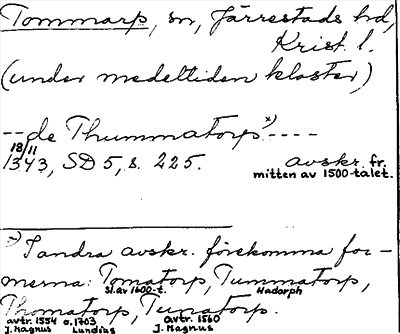 Tommarp, sn, Järrestads hd,
Krist. l.
(under medeltiden kloster)
--de Thummatorp x) ----
18/11
1343, SD 5, s. 225.
avskr. fr.
mitten av 1500-talet.
x) I andra avskr. förekomma for-
merna: Tomatorp, Tummatorp,
sl. av 1600-t. Hadorph
Thomatorp, Tumatorp.
avtr. 1554 o. 1703 avtr. 1560
J. Magnus Lundius J. Magnus